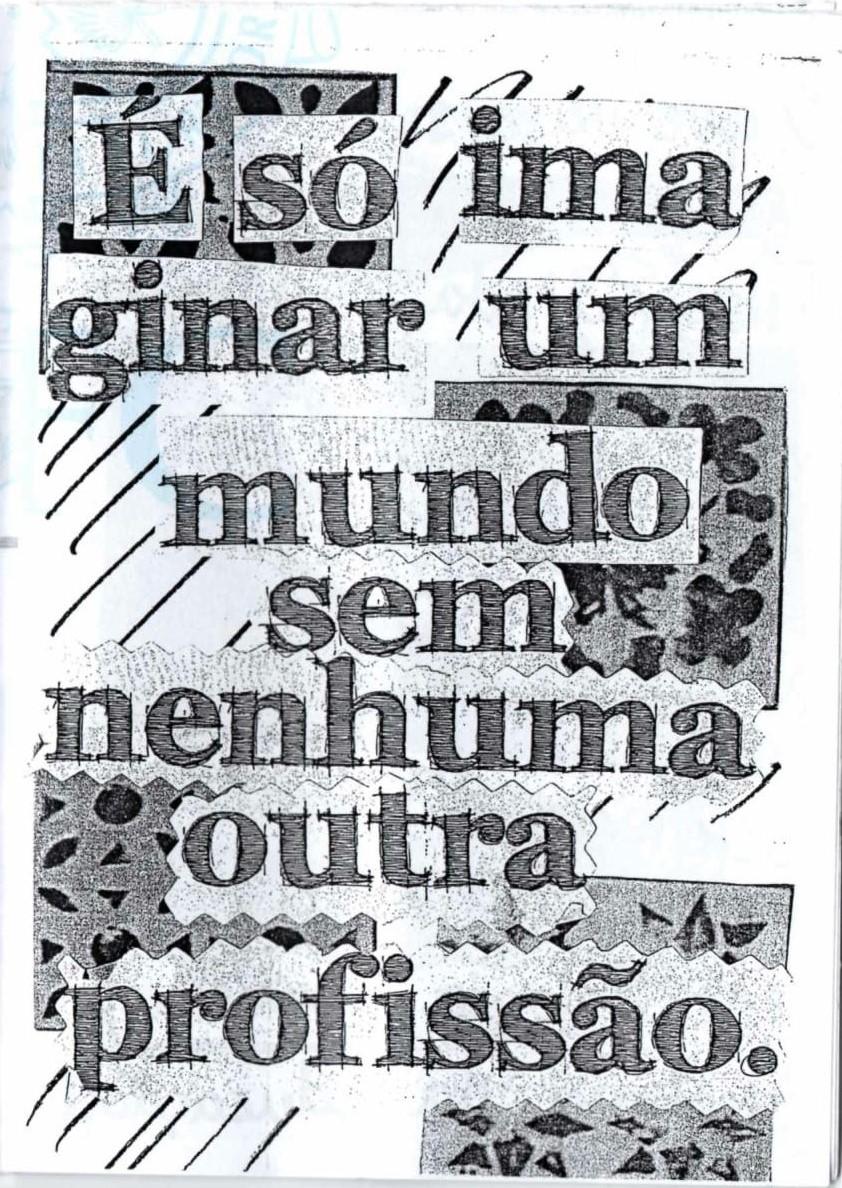 É só ima
ginar um
mundo
sem
nenhuma
outra
profissão.